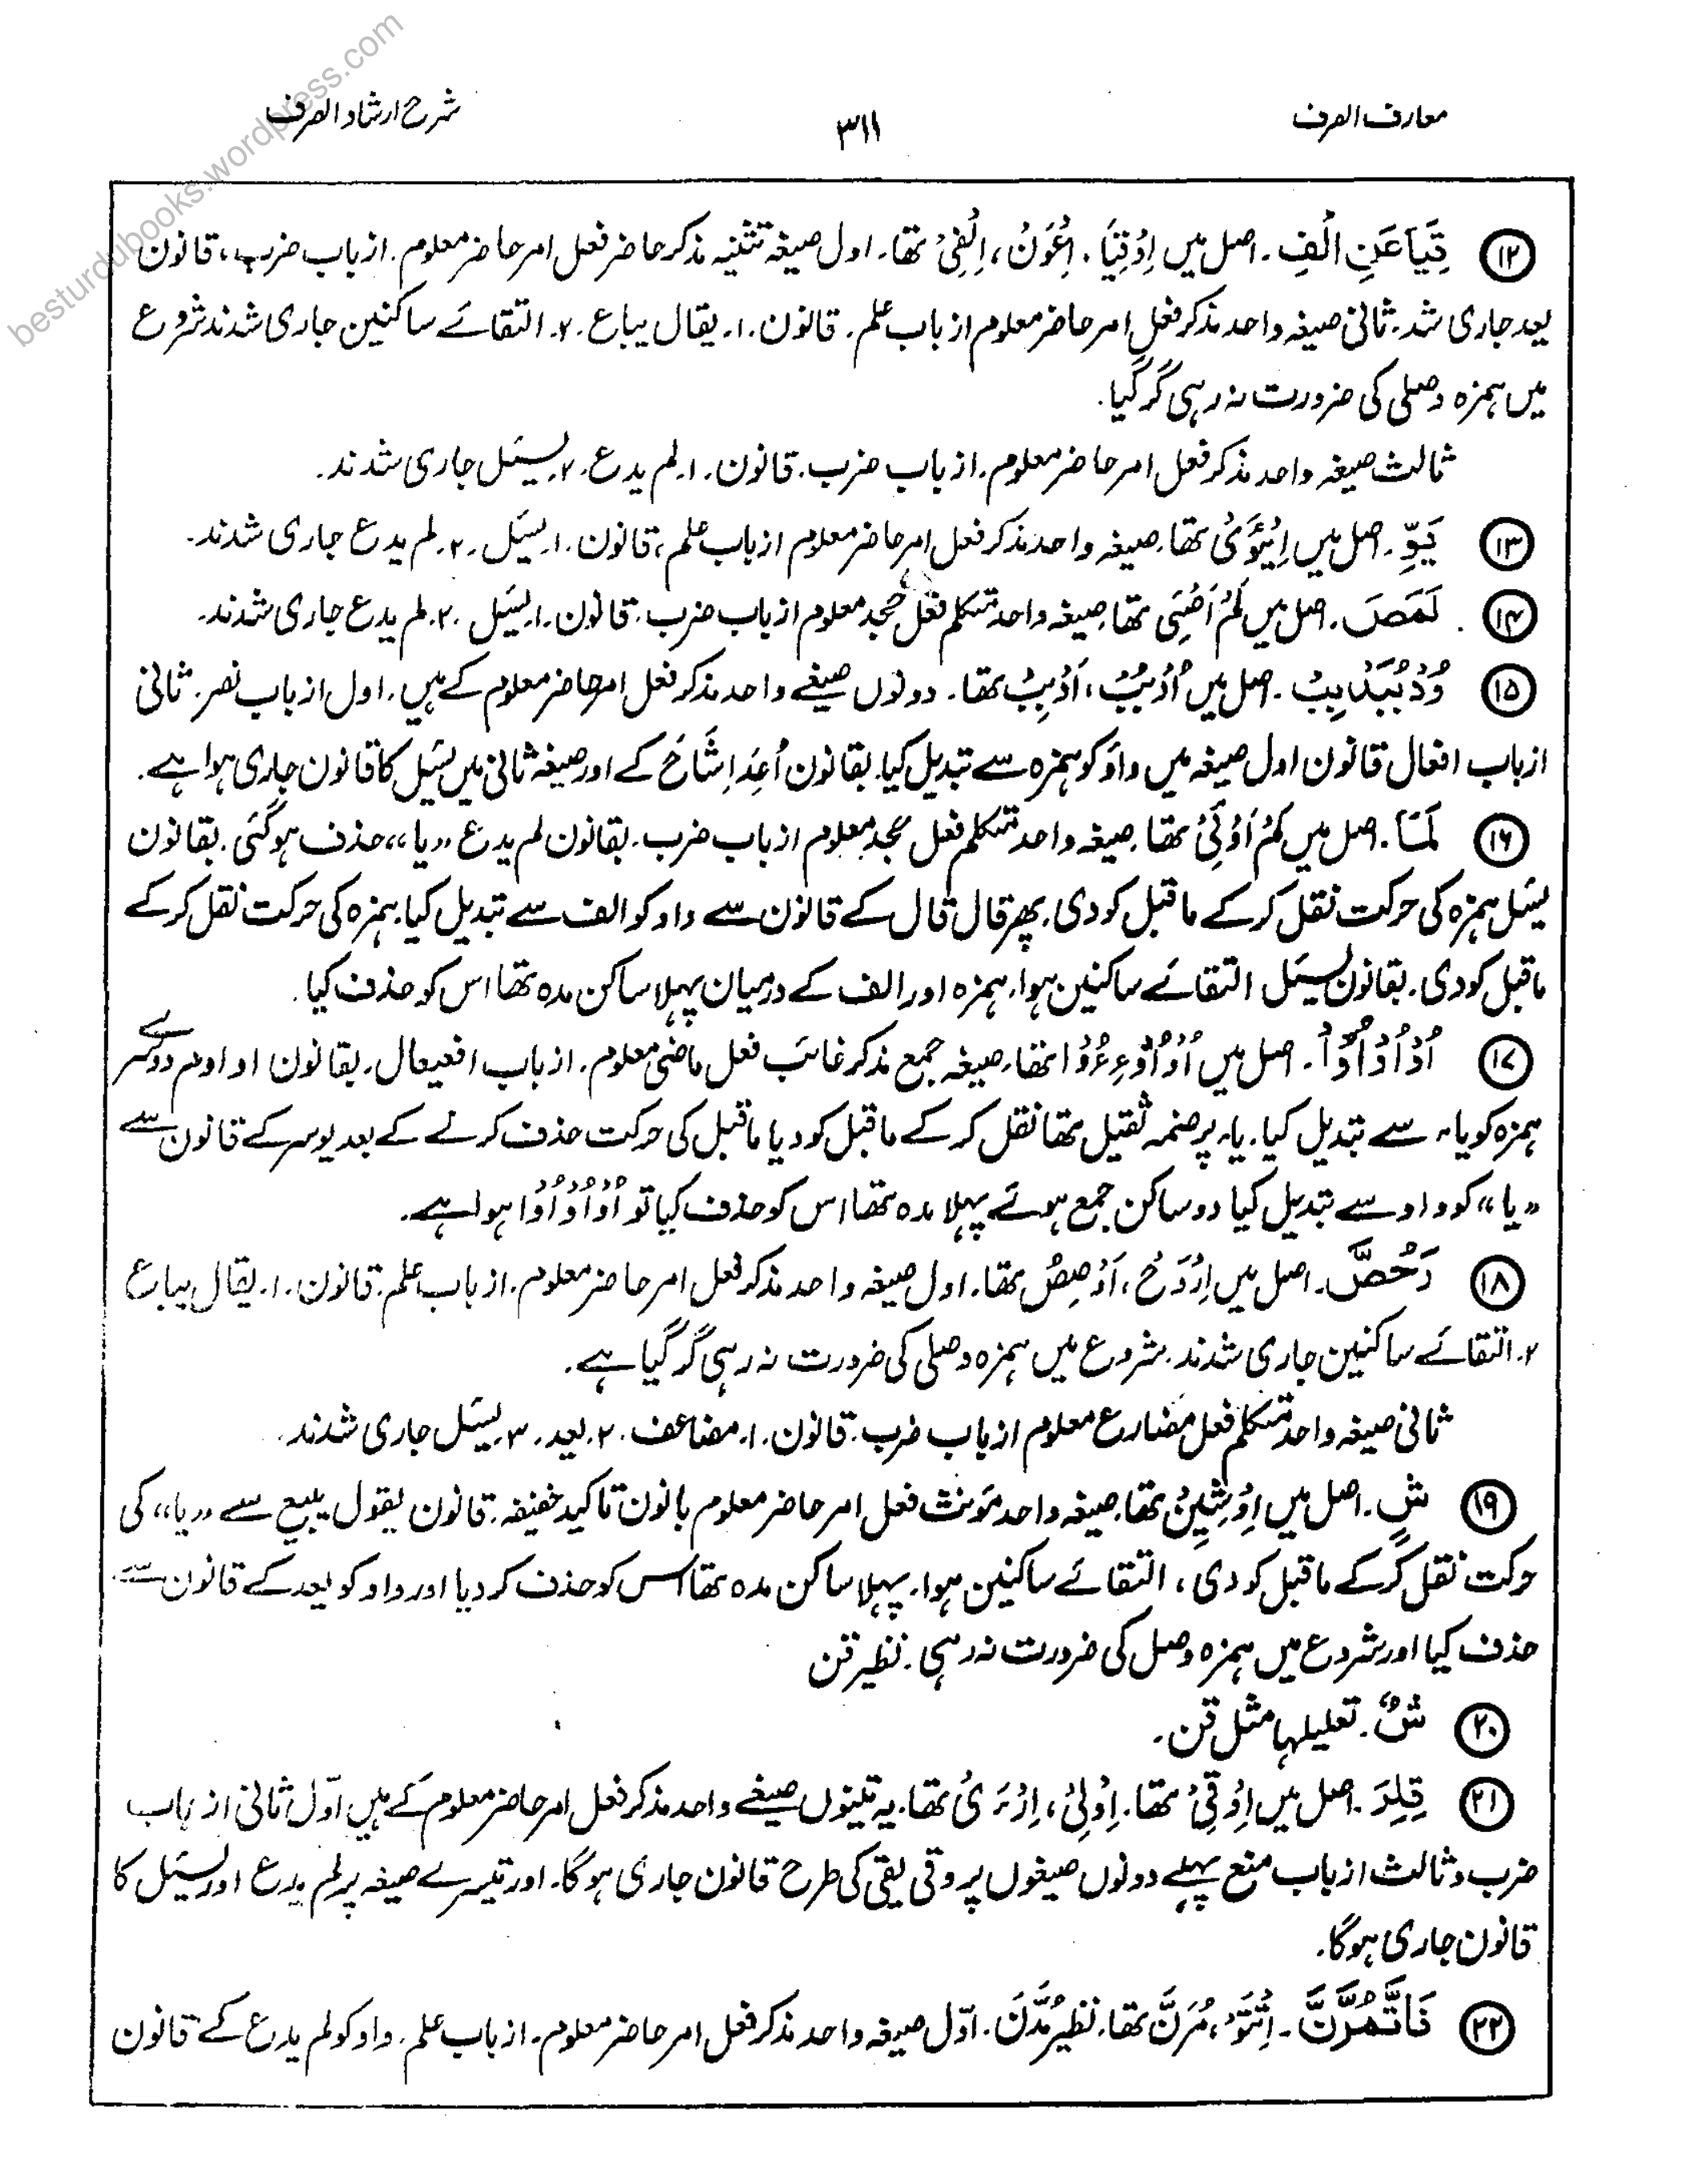 besturdubooks.wordpress.com
معارف الصرف ۳۱۱ شرح ارشاد الصرف
۱۲ قِیَاعَنِ الْفِ۔ اصل میں اِوْقِیَا، اِعْوَنْ، اِلْفِیْ تھا۔ اول صیغہ تثنیہ مذکر حاضر فعل امر حاضر معلوم۔ از باب ضرب، قانون
یعد جاری شد۔ ثانی صیغہ واحد مذکر فعل امر حاضر معلوم از باب علم۔ قانون۔ ۱۔ یقال یباع۔ ۲۔ التقائے ساکنین جاری شدند شروع
میں ہمزہ وصلی کی ضرورت نہ رہی گر گیا۔
ثالث صیغہ واحد مذکر فعل امر حاضر معلوم۔ از باب ضرب۔ قانون۔ ۱۔ لم یدع۔ ۲۔ یسئل جاری شدند۔
۱۳ یَوِّ۔ اصل میں تھا۔ صیغہ واحد مذکر فعل امر حاضر معلوم از باب علم، قانون۔ ۱۔ یسئل۔ ۲۔ لم یدع جاری شدند۔
۱۴ لَمَصَ۔ اصل میں تھا۔ صیغہ واحد متکلم فعل جحد معلوم از باب ضرب۔ قانون۔ ۱۔ یسئل۔ ۲۔ لم یدع جاری شدند۔
۱۵ اصل میں تھا۔ دونوں صیغے واحد مذکر فعل امر حاضر معلوم کے ہیں۔ اول از باب نصر۔ ثانی
از باب افعال قانون اول صیغہ میں واؤ کو ہمزہ سے تبدیل کیا۔ بقانون اُعِدَ اِشَاحَ کے اور صیغہ ثانی میں یسئل کا قانون جاری ہوا ہے۔
۱۶ لَمَا۔ اصل میں لَمْ اَوْئِیْ تھا۔ صیغہ واحد متکلم فعل جحد معلوم از باب ضرب۔ بقانون لم یدع "یا" حذف ہو گئی۔ بقانون
یسئل ہمزہ کی حرکت نقل کر کے ماقبل کو دی۔ پھر قال قال کے قانون سے واو کو الف سے تبدیل کیا۔ ہمزہ کی حرکت نقل کر کے
ماقبل کو دی۔ بقانون یسئل التقائے ساکنین ہوا۔ ہمزہ اور الف کے درمیان پہلا ساکن مدہ تھا اس کو حذف کیا۔
۱۷ اصل میں تھا۔ صیغہ جمع مذکر غائب فعل ماضی معلوم۔ از باب افعیعال۔ بقانون اوادم دوسرے
ہمزہ کو یاء سے تبدیل کیا۔ یاء پر ضمہ ثقیل تھا نقل کر کے ماقبل کو دیا ماقبل کی حرکت حذف کرنے کے بعد یوسر کے قانون سے
"یا" کو واو سے تبدیل کیا دو ساکن جمع ہوئے پہلا مدہ تھا اس کو حذف کیا تو ہوا ہے۔
۱۸ رَحُصَّ۔ اصل میں تھا۔ اول صیغہ واحد مذکر فعل امر حاضر معلوم۔ از باب علم۔ قانون۔ ۱۔ یقال یباع
۲۔ التقائے ساکنین جاری شدند۔ شروع میں ہمزہ وصلی کی ضرورت نہ رہی گر گیا ہے۔
ثانی صیغہ واحد متکلم فعل مضارع معلوم از باب ضرب۔ قانون۔ ۱۔ مضاعف۔ ۲۔ یعد۔ ۳۔ یسئل جاری شدند۔
۱۹ شِ۔ اصل میں اِوْشِیِنْ تھا۔ صیغہ واحد مؤنث فعل امر حاضر معلوم بانون تاکید خفیفہ۔ قانون یقول یبیع سے "یا" کی
حرکت نقل کر کے ماقبل کو دی، التقائے ساکنین ہوا۔ پہلا ساکن مدہ تھا اس کو حذف کر دیا اور واو کو یعد کے قانون سے
حذف کیا اور شروع میں ہمزہ وصل کی ضرورت نہ رہی۔ نظیر قن
۲۰ شٌ۔ تعلیلہا مثل قن۔
۲۱ قِلِرَ۔ اصل میں اِوْقِیْ تھا۔ اِوْلِیْ، اِرْءَیْ تھا۔ یہ تینوں صیغے واحد مذکر فعل امر حاضر معلوم کے ہیں اوّل ثانی از باب
ضرب وثالث از باب منع پہلے دونوں صیغوں پر وقی یقی کی طرح قانون جاری ہو گا۔ اور تیسرے صیغہ پر لم یدع اور یسئل کا
قانون جاری ہوگا۔
۲۲ تھا۔ نظیر مُدَّنَ۔ اوّل صیغہ واحد مذکر فعل امر حاضر معلوم۔ از باب علم۔ واو کو لم یدع کے قانون